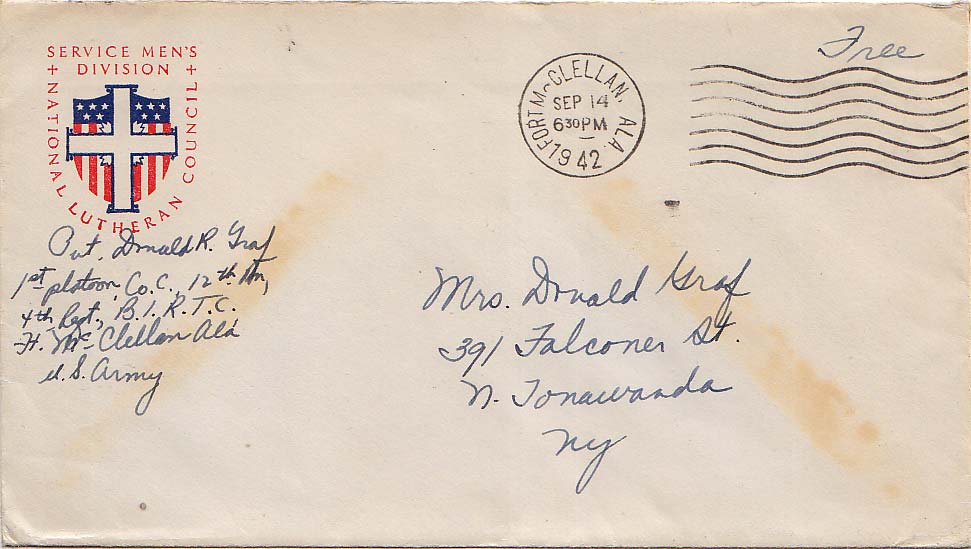 SERVICE MEN'S
DIVISION
+ NATIONAL LUTHERAN COUNCIL +
Pvt. Donald R. Graf
1st platoon, Co. C., 12th Bn,
4th Regt., B.I.R.T.C.
Ft. McClellan Ala
U.S. Army
FORT McCLELLAN, ALA
SEP 14
630PM
1942
Free
Mrs. Donald Graf
391 Falconer St.
N. Tonawanda
NY